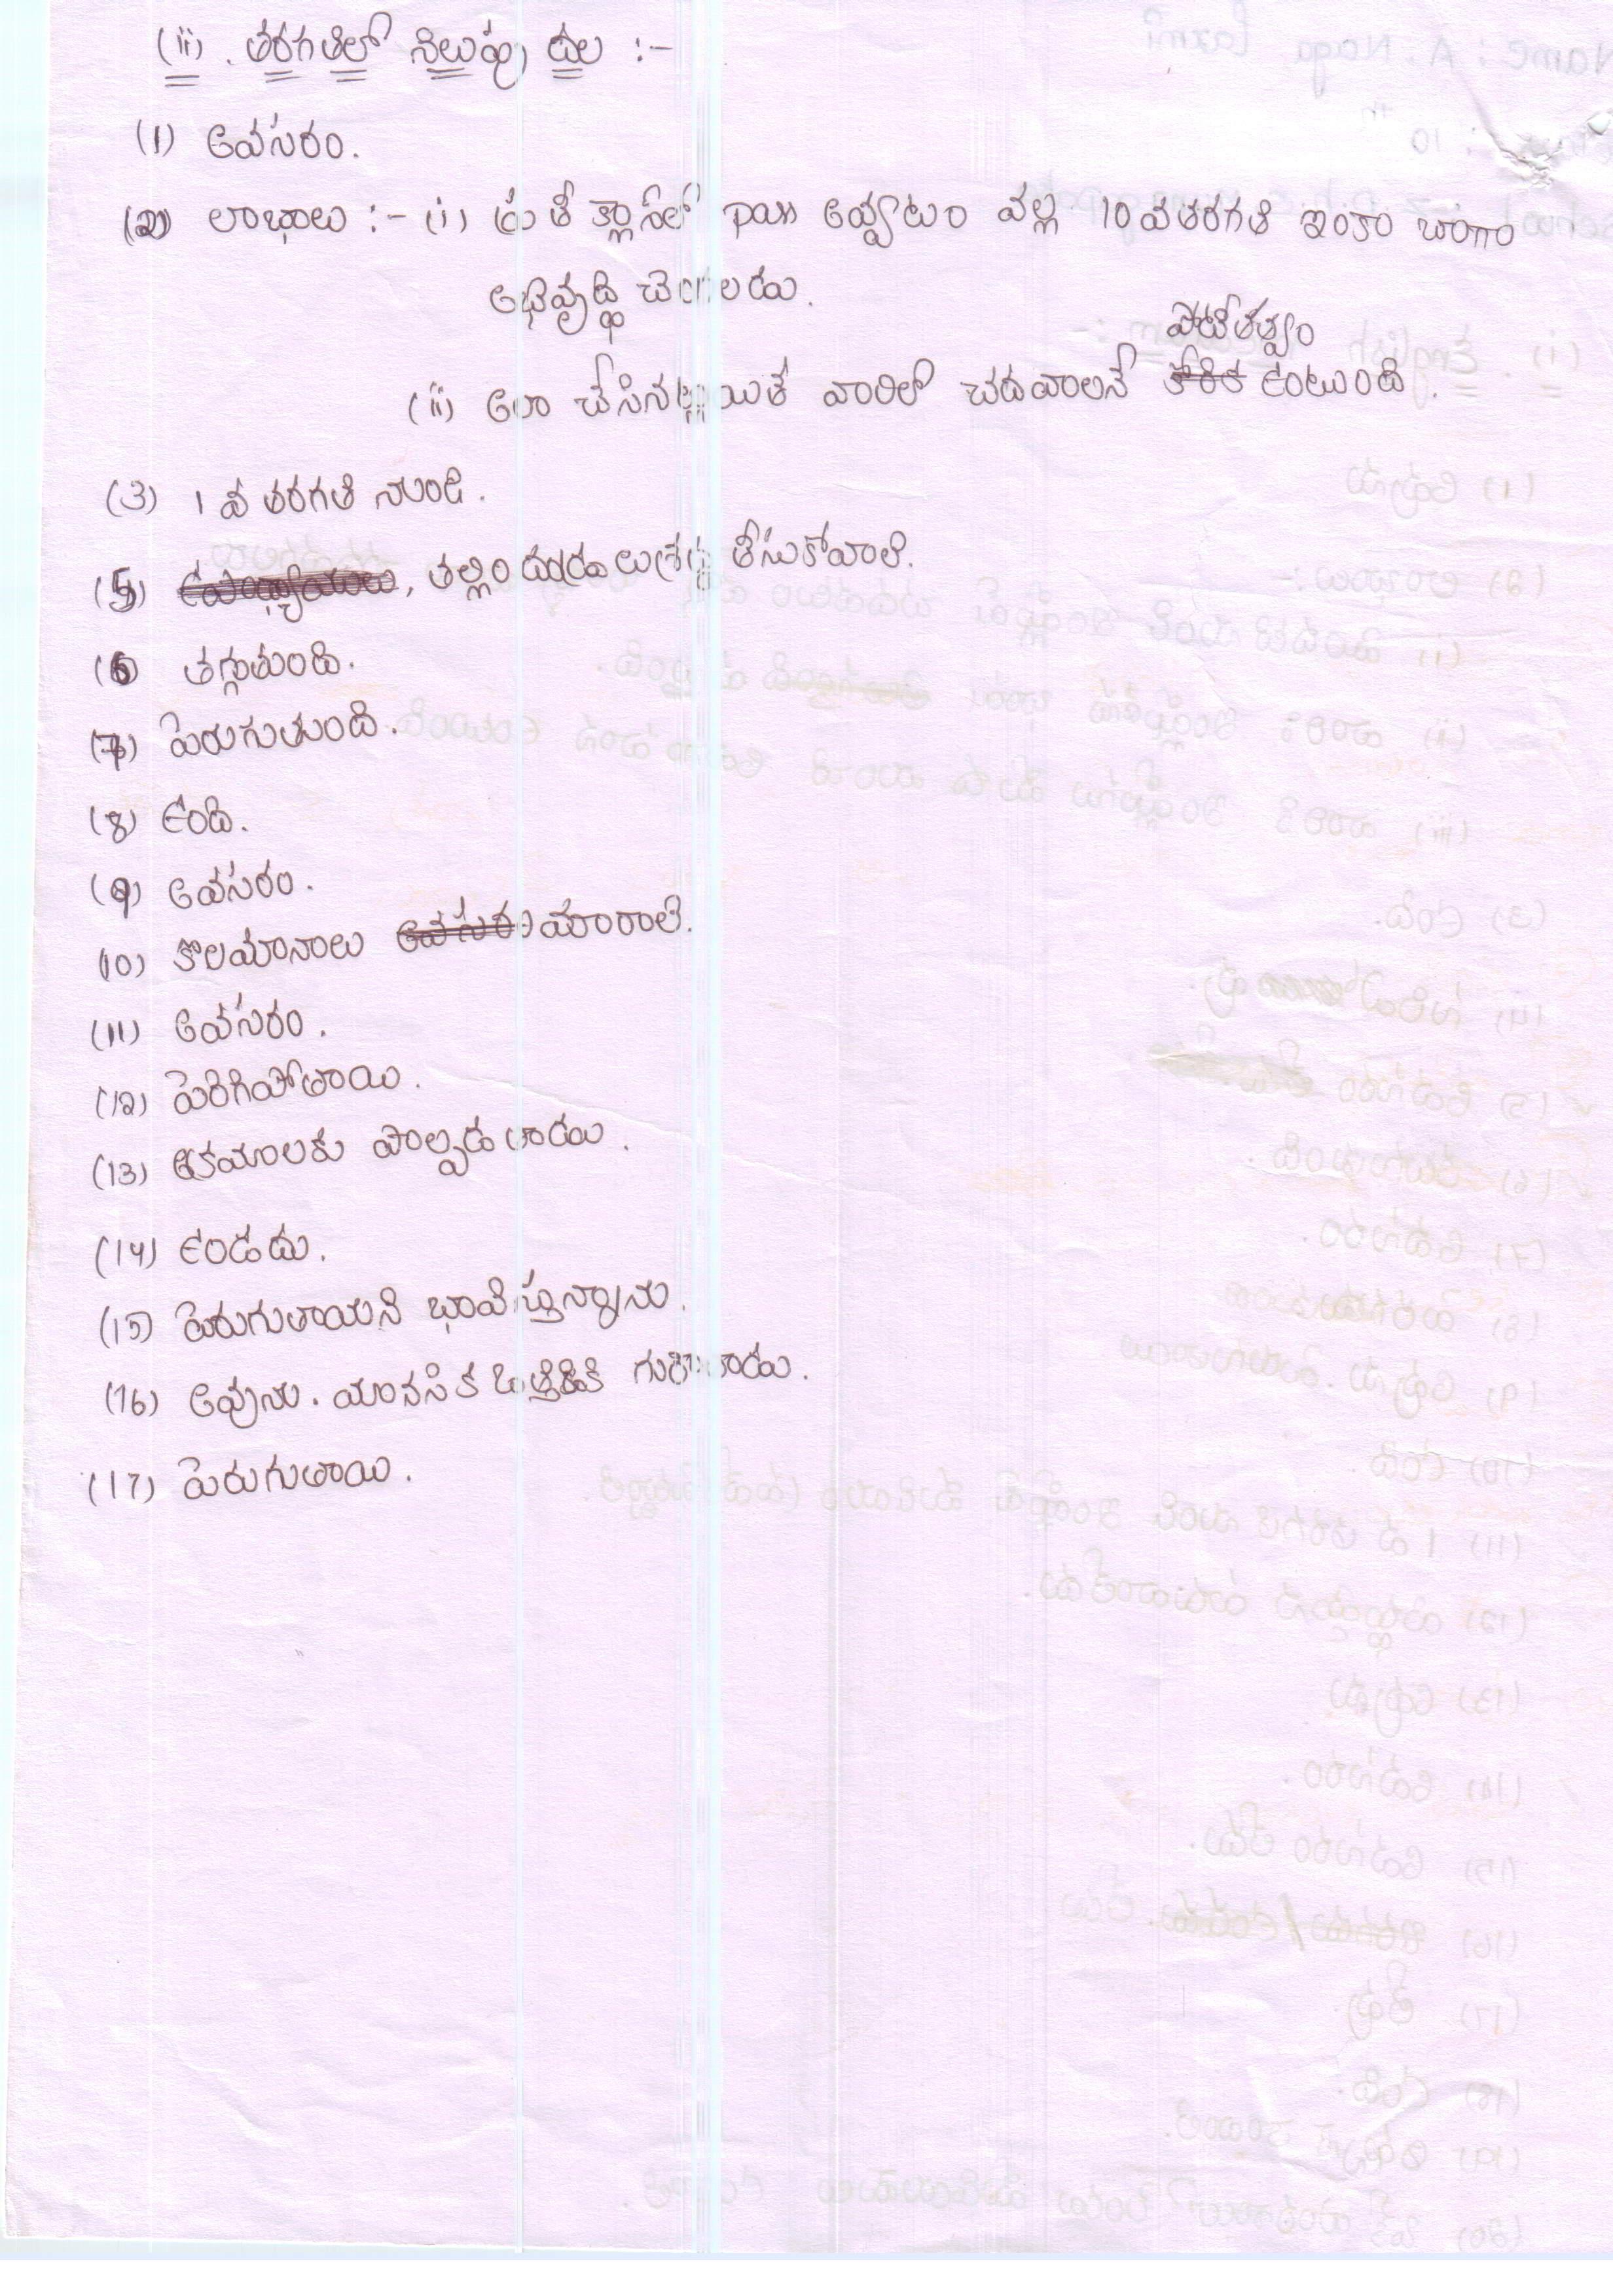 (ii). తరగతిలో నిలుపు దల :-
(1) అవసరం.
(2) లాభాలు :- (i) ప్రతీ క్లాస్‌లో pass అవ్వటం వల్ల 10వ తరగతి ఇంకా బాగా
అభివృద్ధి చెందగలడు.
పోటీతత్వం
(ii) అలా చేసినట్లయితే వారిలో చదవాలనే కోరిక ఉంటుంది.
(3) 1వ తరగతి నుండి.
(5) ఉపాధ్యాయులు, తల్లిందండ్రులు శ్రద్ధ తీసుకోవాలి.
(6) తగ్గుతుంది.
(7) పెరుగుతుంది.
(8) ఉంది.
(9) అవసరం.
(10) కొలమానాలు అవసరం మారాలి.
(11) అవసరం.
(12) పెరిగిపోతాయి.
(13) అక్రమాలకు పాల్పడతారు.
(14) ఉండదు.
(15) పెరుగుతాయని భావిస్తున్నాను.
(16) అవును. మానసిక ఒత్తిడికి
(17) పెరుగుతాయి.